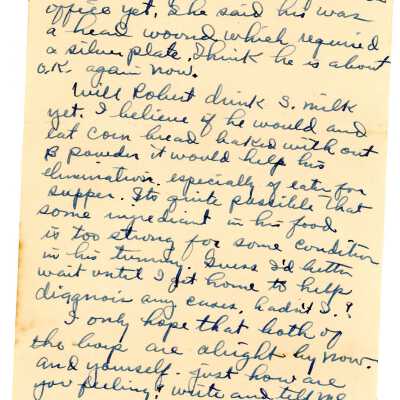 office yet. She said his was
a head wound which required
a silver plate. Think he is about
O.K. again now.
Will Robert drink S. milk
yet. I believe if he would and
eat corn bread baked without
B powder it would help his
elimination. especially if eaten for
supper. Its quite possible that
some ingredient in his food
is too strong for some condition
in his tummy. Guess I'd better
wait until I get home to help
diagnois any cases, hadn't I?
I only hope that both of
the boys are alright by now.
and yourself. just how are
you feeling? write and tell me